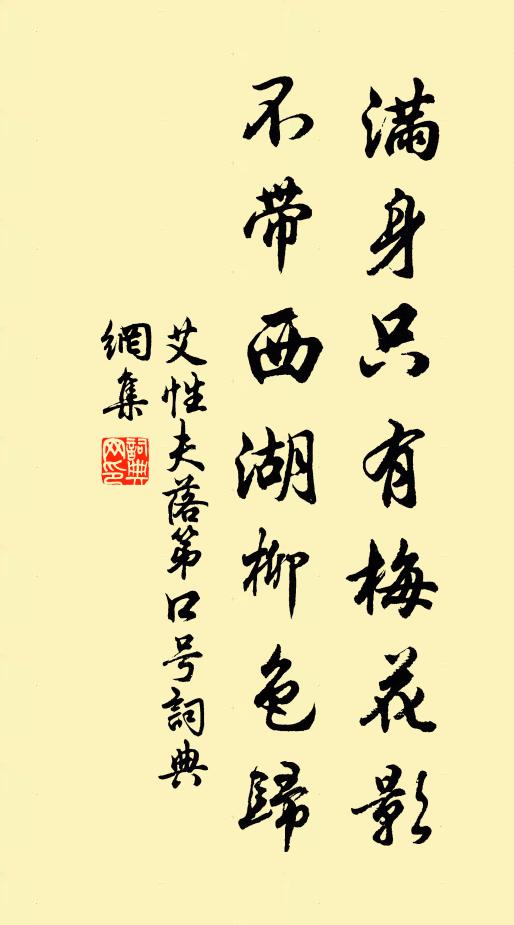 滿身只有梅花影
不带西湖柳色歸
艾性夫落第口号詞典
網集
詞典网印